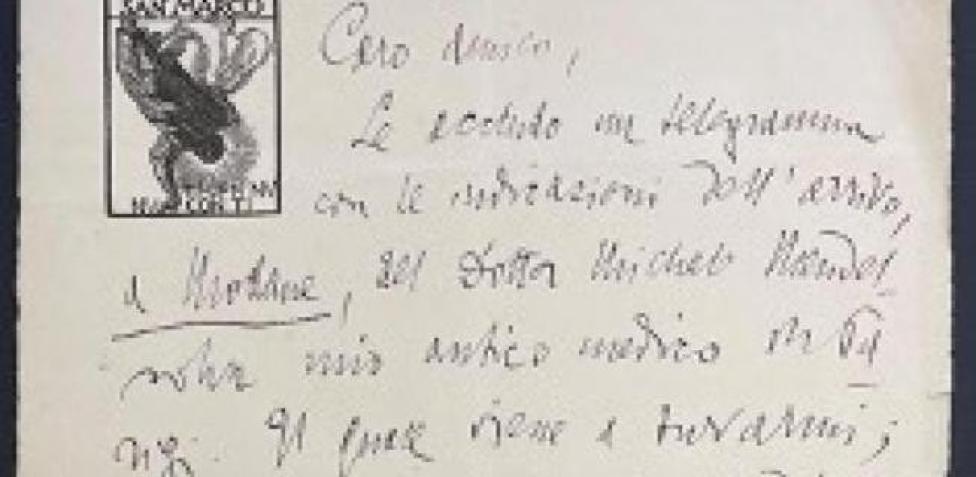 SAN MARCO
Caro amico,
Le accludo un telegramma
con le indicazioni dell'arrivo,
a Modane, del Dottor Michele Mendel-
mio antico medico di Pa
rigi. Il quale viene a trovarmi;